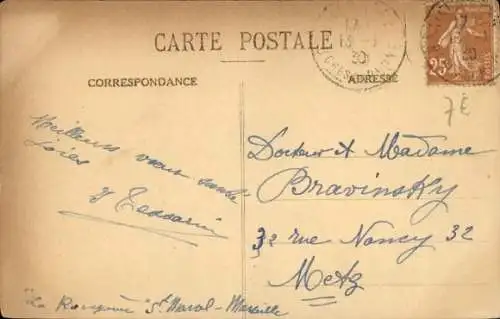 CARTE POSTALE
CORRESPONDANCE
ADRESSE
25c
7€
Meilleurs vœux
Docteur et Madame
Bravinsky
32 rue Nancy 32
Metz
"La" St Marcel - Marseille